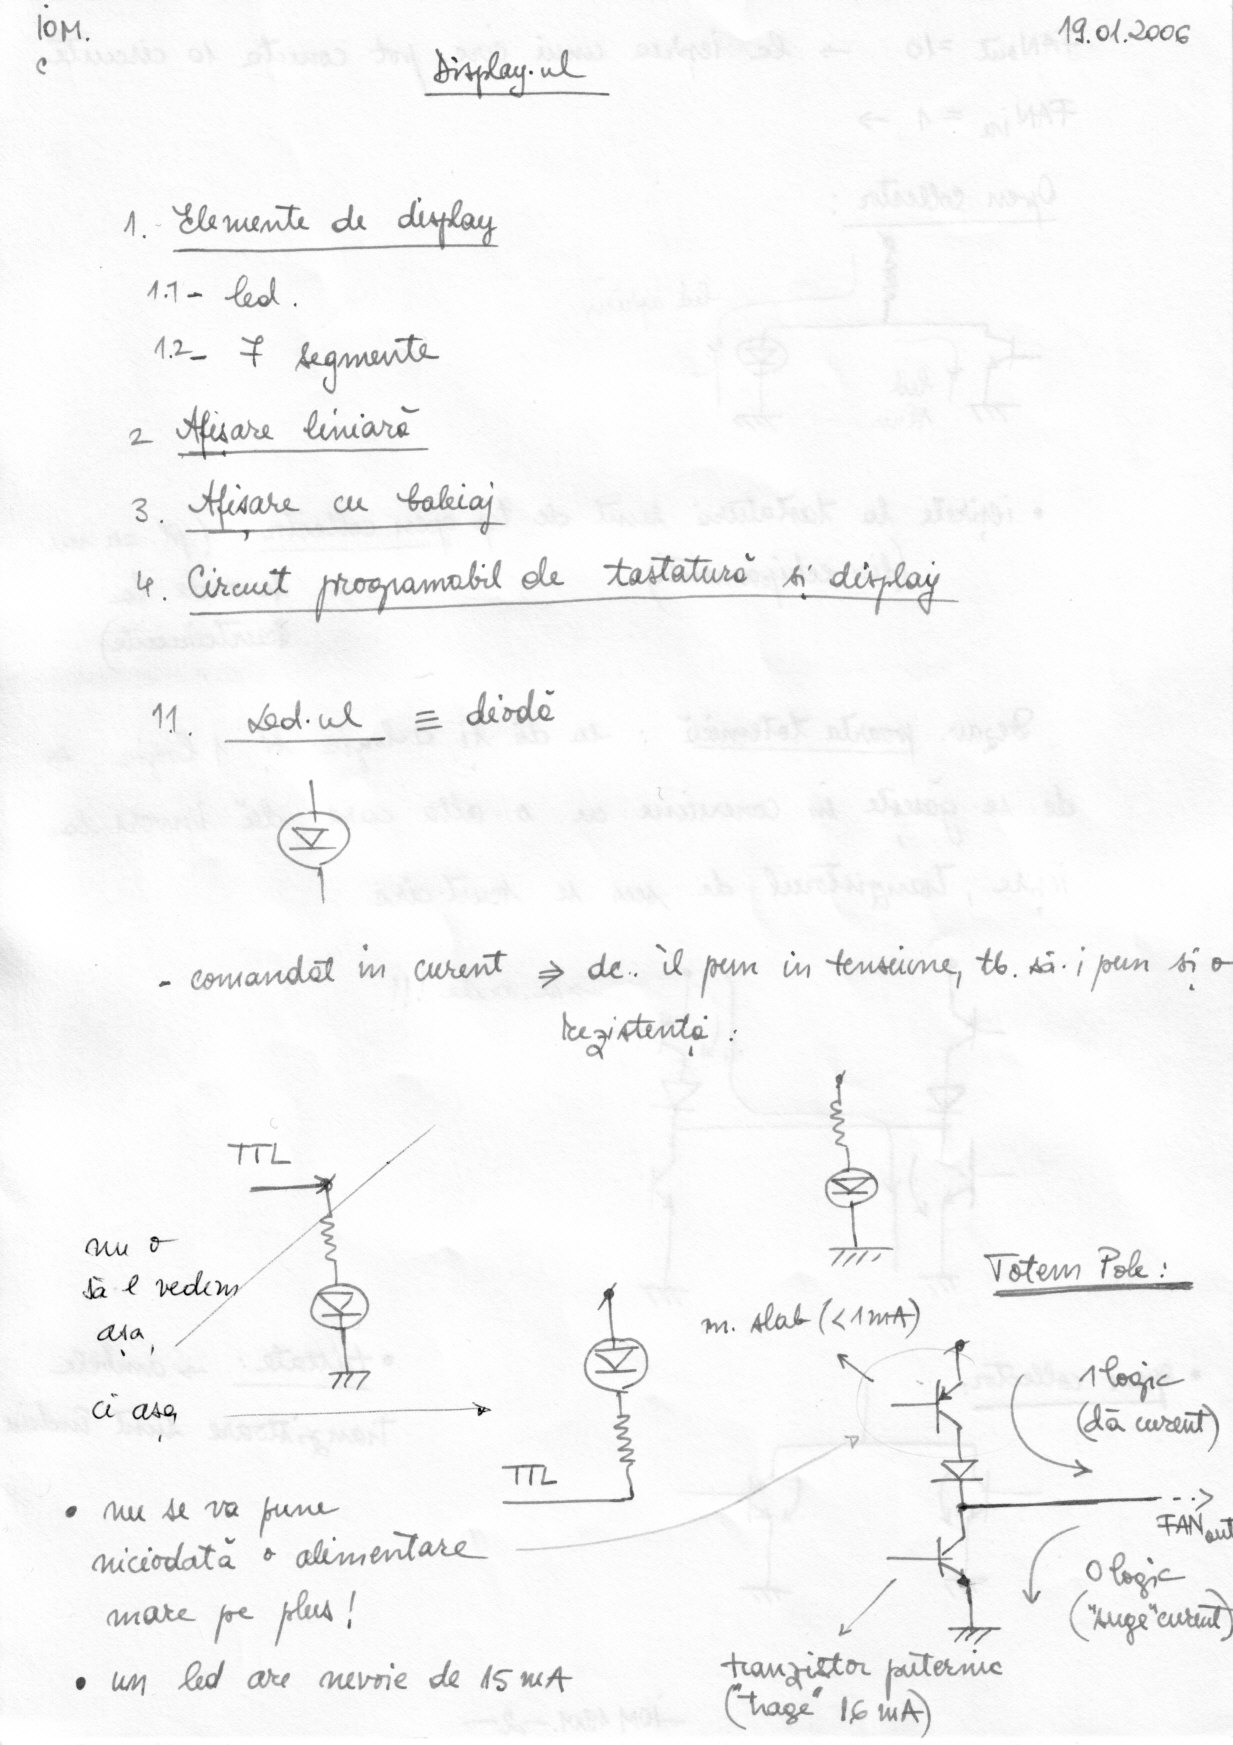 IOM.
C
19.01.2006
Display-ul
1. Elemente de display
1.1 - led.
1.2 - 7 segmente
2 Afișare liniară
3. Afișare cu baleiaj
4. Circuit programabil de tastatură și display
11. Led-ul ≡ diodă
- comandat in curent ⇒ dc. îl pun in tensiune, tb. să-i pun și o
rezistență :
TTL
nu o
să-l vedem
așa,
ci așa
TTL
Totem Pole :
m. slab (<1mA)
1 logic
(dă curent)
FANout
0 logic
("suge" curent)
tranzistor puternic
("trage" 16 mA)
• nu se va pune
niciodată o alimentare
mare pe plus!
• un led are nevoie de 15 mA